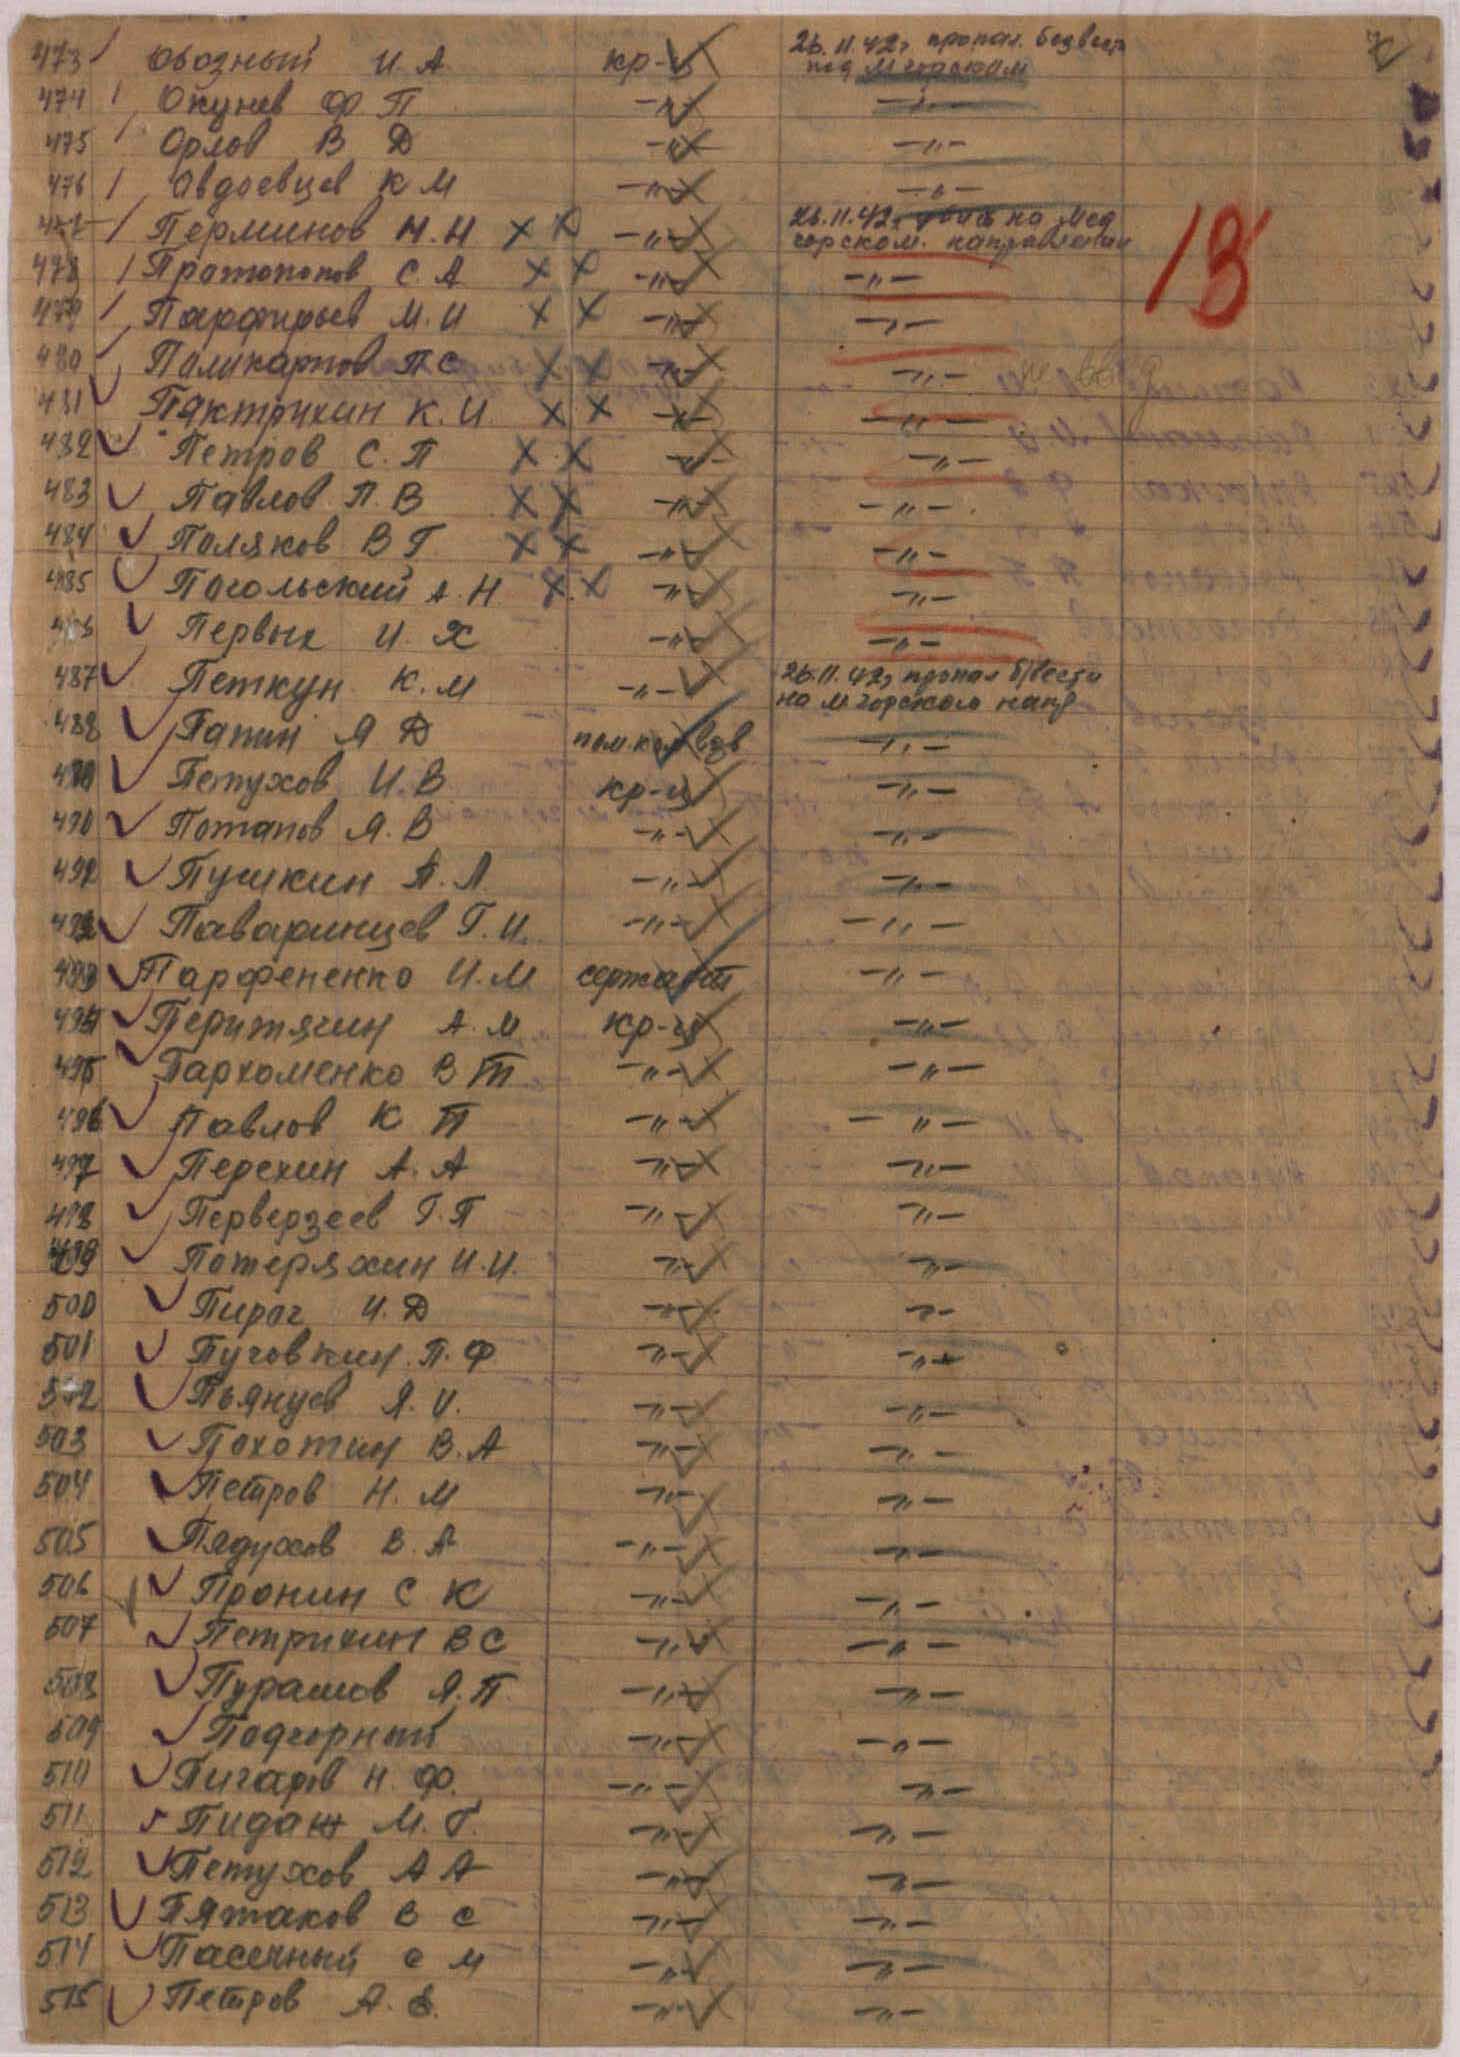 473 Обозный И. А. кр-ц 26.11.42г. пропал. безвест
под М горском
474 Окунев Ф П -"- -"-
475 Орлов В Д -"- -"-
476 Овдоевцев К М -"- -"-
477 Перминов Н. Н ХХ -"- 26.11.42г. убит на Мед
горском. направлении
478 Протопопов С. А ХХ -"- -"-
479 Парфирьев М. И ХХ -"- -"-
480 Поликарпов П С ХХ -"- -"-
481 Пактрихин К. И. ХХ -"- -"-
482 Петров С. П ХХ -"- -"-
483 Павлов П. В ХХ -"- -"-
484 Поляков В Г. ХХ -"- -"-
485 Погольский А. Н ХХ -"- -"-
486 Первых И. Х -"- -"-
487 Петкун К. М -"- 26.11.42г пропал б/вести
на М горском напр
488 Папин Я Д пом. ком взв -"-
489 Петухов И. В кр-ц -"-
490 Потапов Я. В -"- -"-
491 Пушкин А. Л -"- -"-
492 Паваринцев Г. И. -"- -"-
493 Парфененко И. М сержант -"-
494 Перитягин А. М кр-ц -"-
495 Пархоменко В Т -"- -"-
496 Павлов К П -"- -"-
497 Перехин А. А -"- -"-
498 Перверзеев Г. П -"- -"-
499 Потеряхин И. И. -"- -"-
500 Пирог И. Д -"- -"-
501 Пуговкин. П. Ф -"- -"-
502 Пьянцев Я. И. -"- -"-
503 Похотин В. А -"- -"-
504 Петров Н. М -"- -"-
505 Пядухов В. А -"- -"-
506 Пронин С К -"- -"-
507 Петрихин В С -"- -"-
508 Пурашов Я. П. -"- -"-
509 Подгорный -"- -"-
510 Пигарев Н. Ф. -"- -"-
511 Пидаш М. Г. -"- -"-
512 Петухов А А -"- -"-
513 Пятаков В С -"- -"-
514 Пасечный С М -"- -"-
515 Петров А. -"- -"-
13